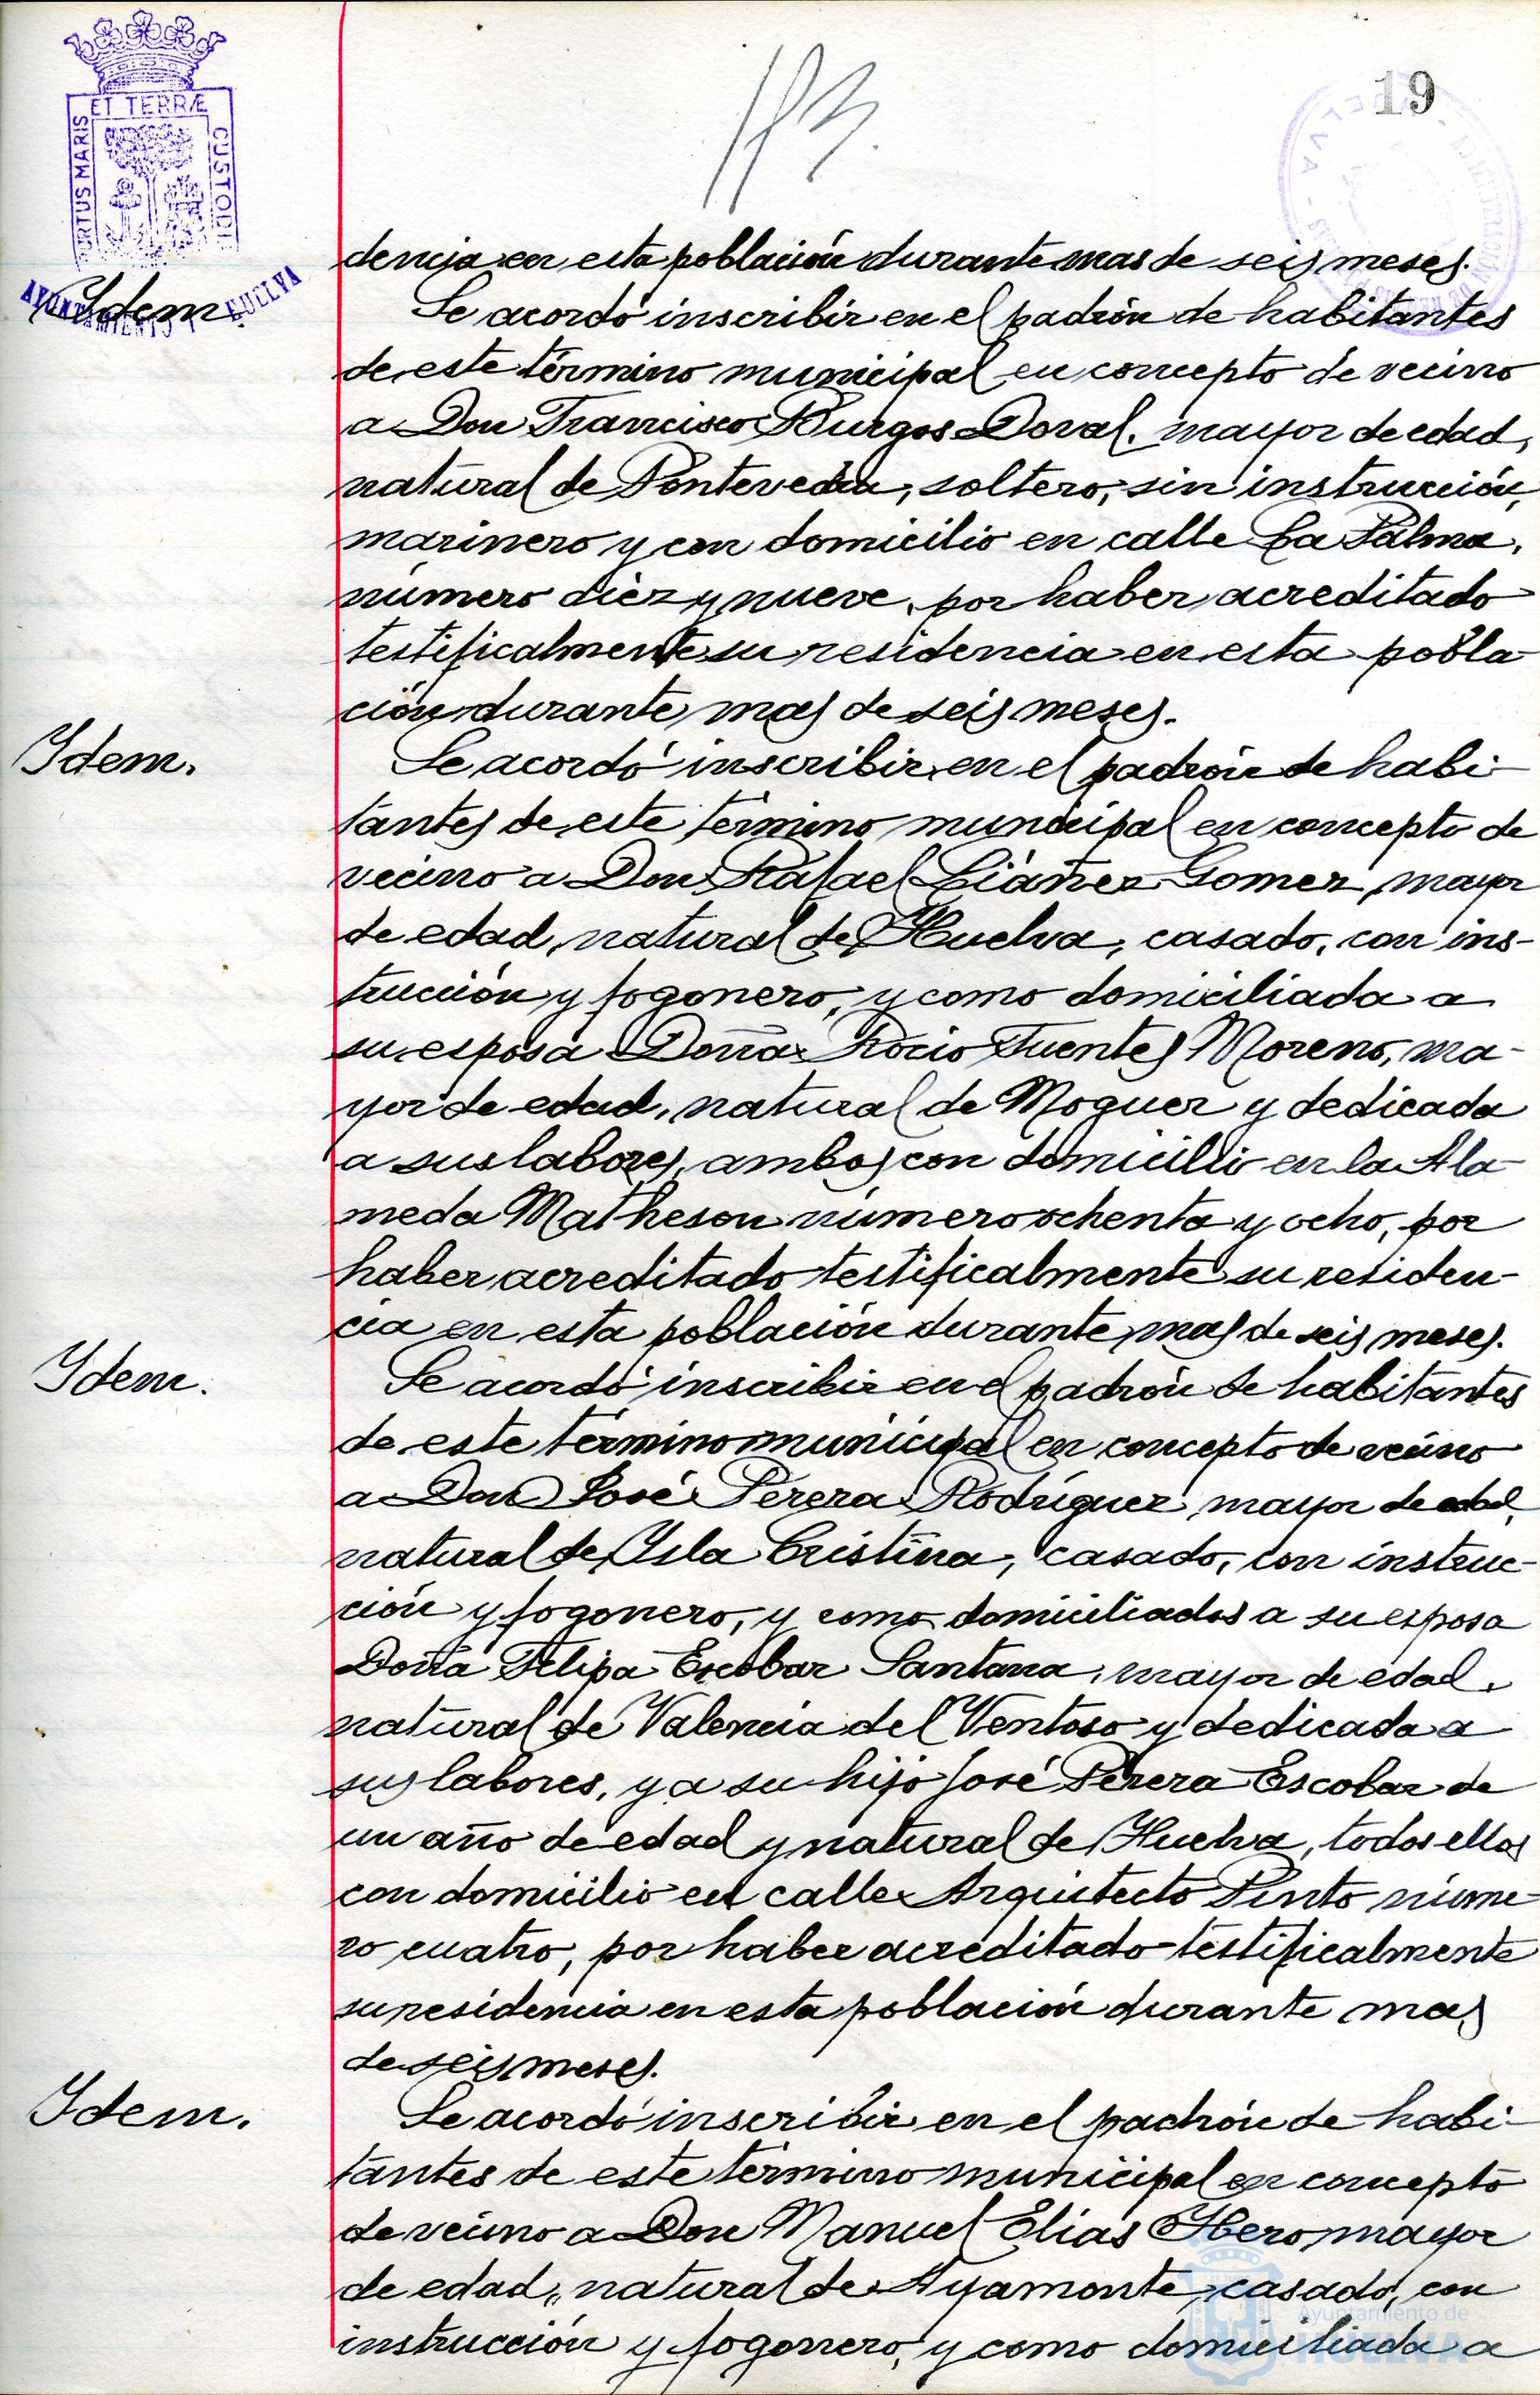 19
113.
ET TERRÆ
PORTUS MARIS
CUSTODI
AYUNTAMIENTO
HUELVA
dencia en esta población durante mas de seis meses.
Idem.
Se acordó inscribir en el padrón de habitantes
de este término municipal en concepto de vecino
a Don Francisco Burgos Doval, mayor de edad,
natural de Pontevedra, soltero, sin instrucción,
marinero y con domicilio en calle La Palma,
número diez y nueve, por haber acreditado
testificalmente su residencia en esta pobla-
ción durante mas de seis meses.
Idem.
Se acordó inscribir en el padrón de habi-
tantes de este término municipal en concepto de
vecino a Don Rafael Liáñez Gomez, mayor
de edad, natural de Huelva, casado, con ins-
trucción y fogonero, y como domiciliada a
su esposa Doña Rocio Fuentes Moreno, ma-
yor de edad, natural de Moguer y dedicada
a sus labores, ambos con domicilio en la Ala-
meda Matheson número ochenta y ocho, por
haber acreditado testificalmente su residen-
cia en esta población durante mas de seis meses.
Idem.
Se acordó inscribir en el padrón de habitantes
de este término municipal en concepto de vecino
a Don José Perera Rodríguez, mayor de edad,
natural de Isla Cristina, casado, con instruc-
ción y fogonero, y como domiciliados a su esposa
Doña Felipa Escobar Santana, mayor de edad,
natural de Valencia del Ventoso y dedicada a
sus labores, y a su hijo José Perera Escobar de
un año de edad y natural de Huelva, todos ellos
con domicilio en calle Arquitecto Pinto núme-
ro cuatro, por haber acreditado testificalmente
su residencia en esta población durante mas
de seis meses.
Idem.
Se acordó inscribir en el padrón de habi-
tantes de este término municipal en concepto
de vecino a Don Manuel Elias mayor
de edad, natural de Ayamonte, casado, con
instrucción y fogonero, y como domiciliada a
Ayuntamiento de
HUELVA